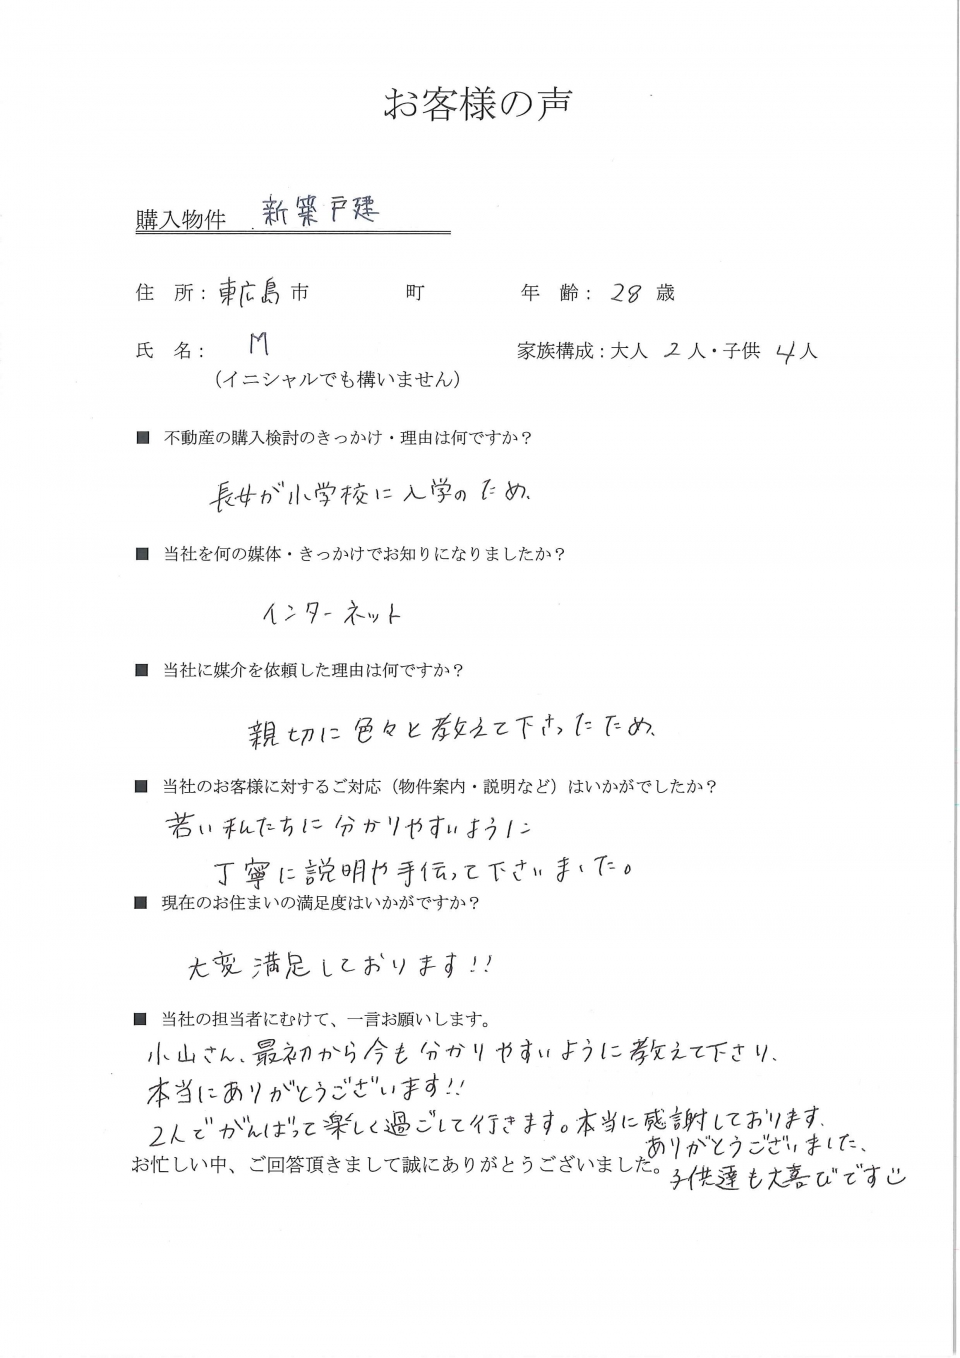 お客様の声
購入物件 新築戸建
住 所：東広島市 町 年 齢：28歳
氏 名： M 家族構成：大人 2人・子供 4人
（イニシャルでも構いません）
■ 不動産の購入検討のきっかけ・理由は何ですか？
長女が小学校に入学のため、
■ 当社を何の媒体・きっかけでお知りになりましたか？
インターネット
■ 当社に媒介を依頼した理由は何ですか？
親切に色々と教えて下さったため、
■ 当社のお客様に対するご対応（物件案内・説明など）はいかがでしたか？
若い私たちに分かりやすいように
丁寧に説明や手伝って下さいました。
■ 現在のお住まいの満足度はいかがですか？
大変満足しております!!
■ 当社の担当者にむけて、一言お願いします。
小山さん、最初から今も分かりやすいように教えて下さり、
本当にありがとうございます!!
2人でがんばって楽しく過ごして行きます。本当に感謝しております、
ありがとうございました、
お忙しい中、ご回答頂きまして誠にありがとうございました。
子供達も大喜びです